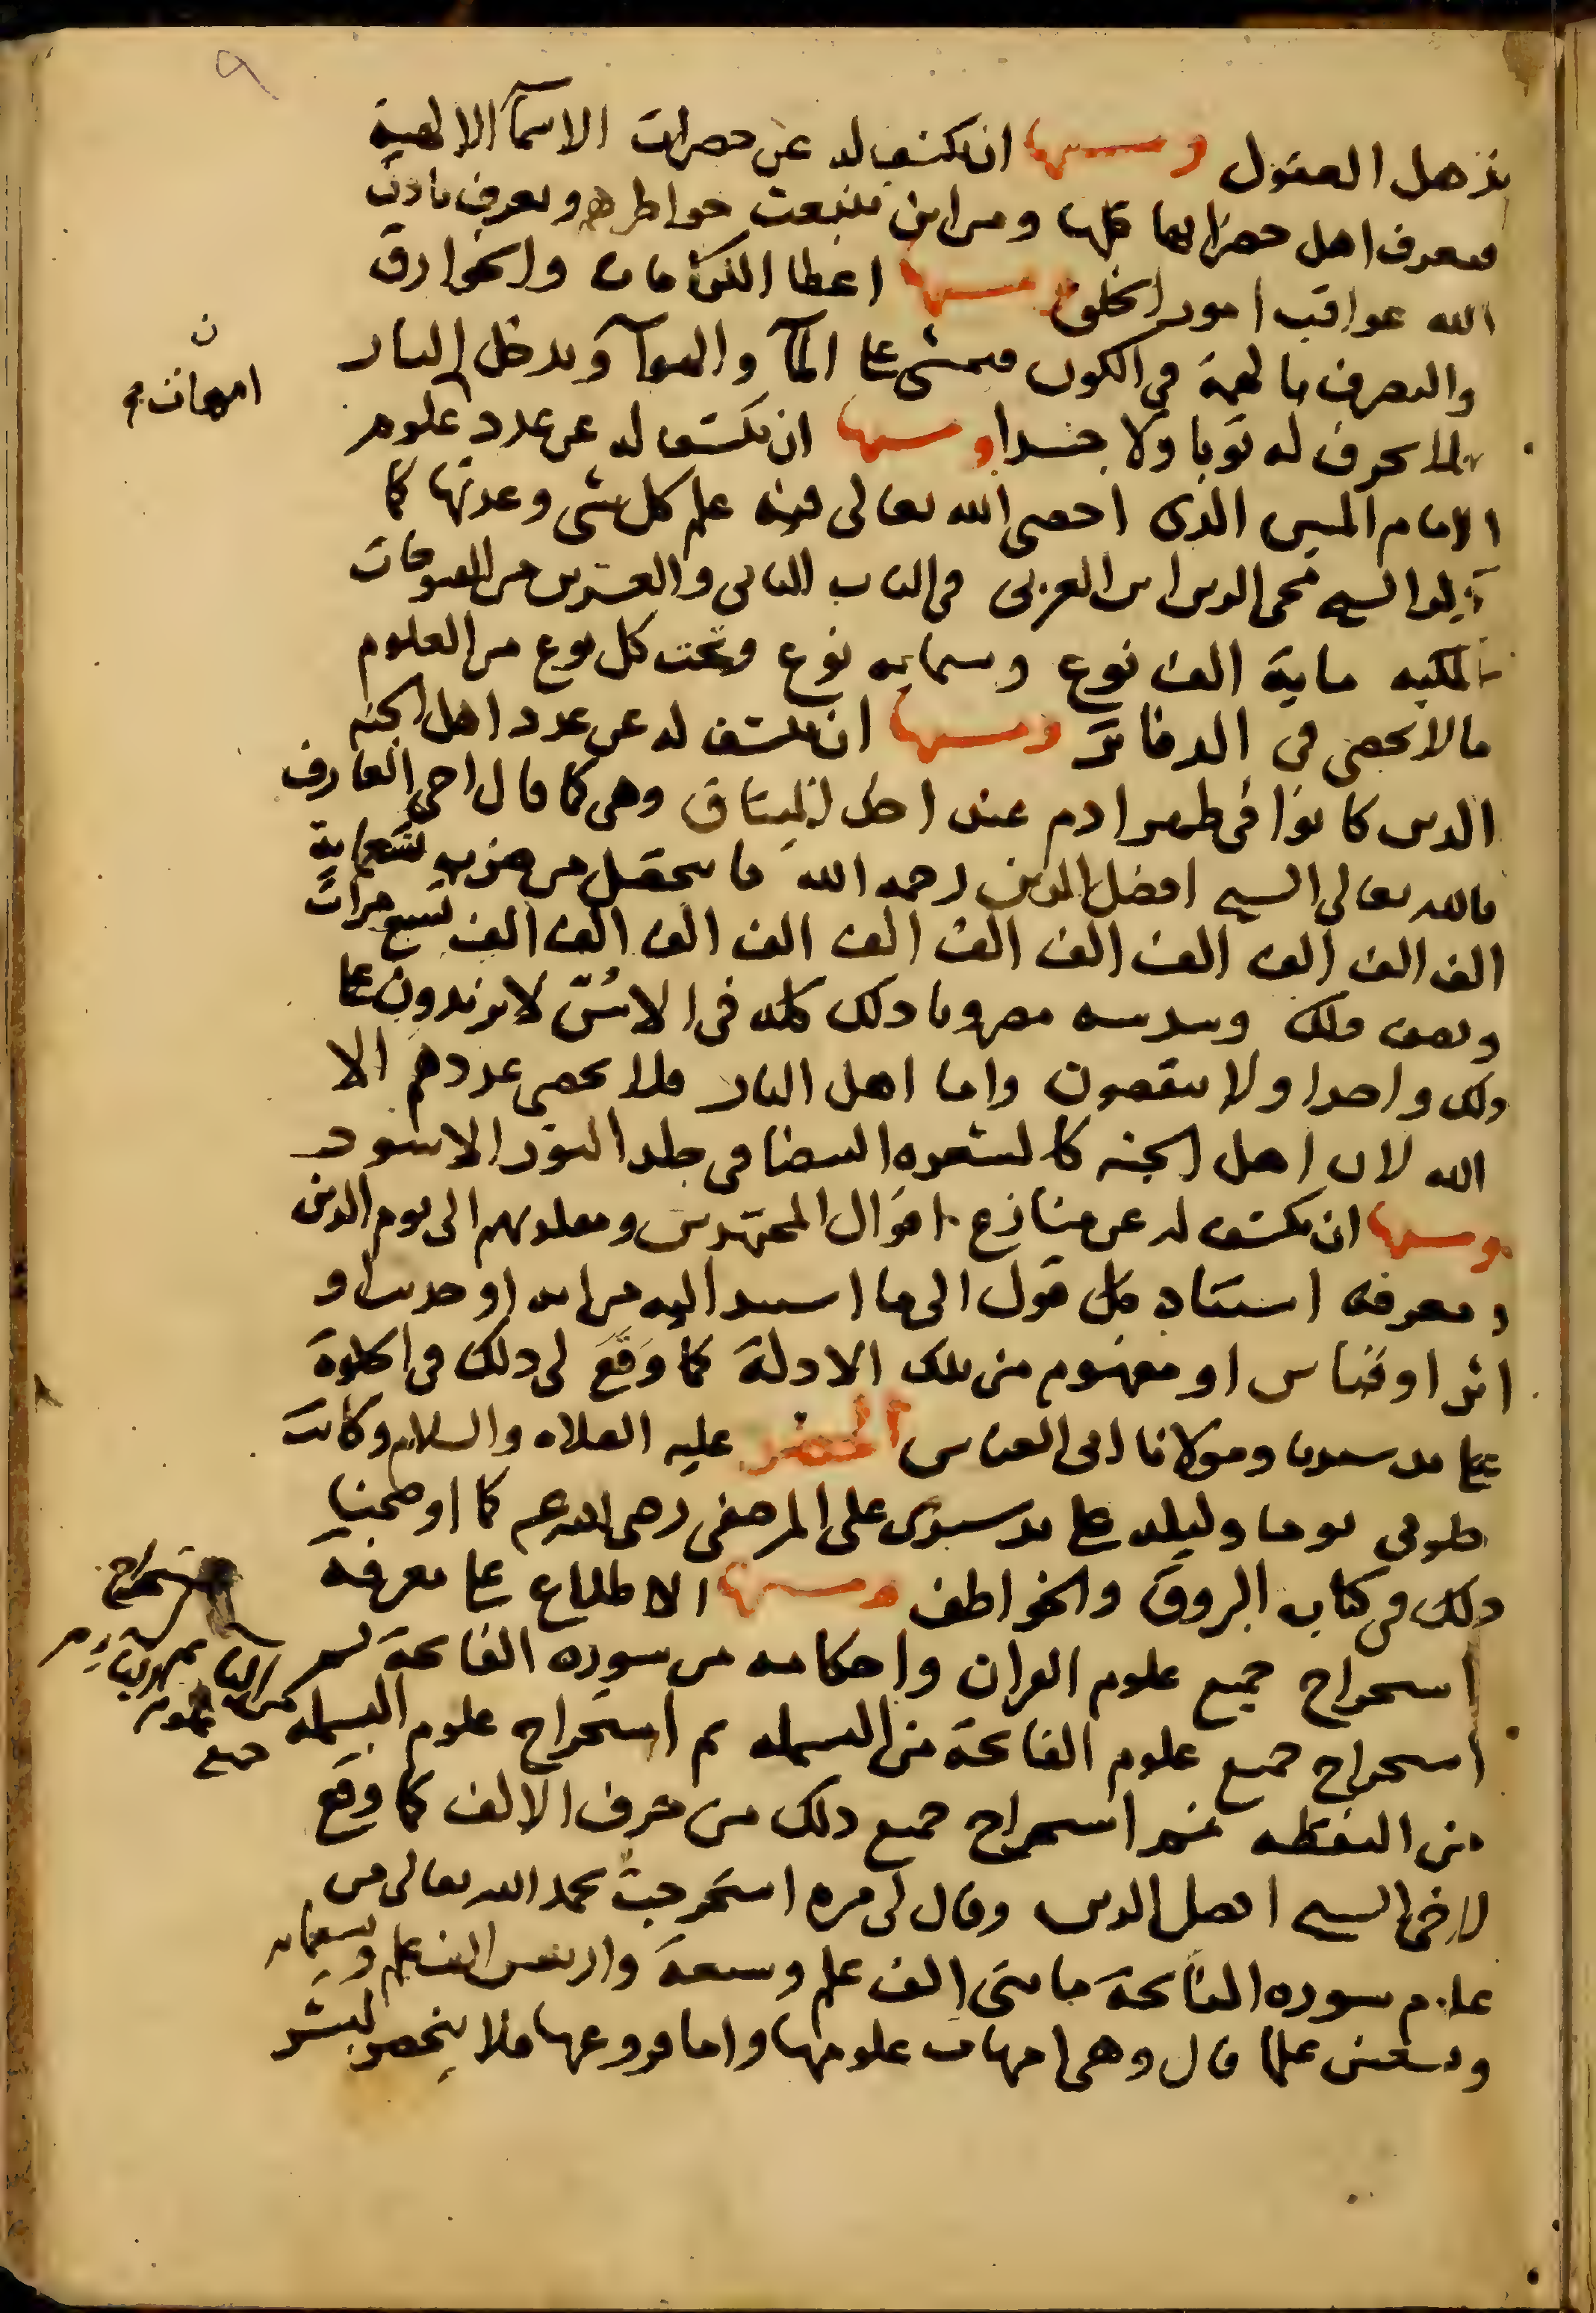 ٩
تذهل العقول ومنها ان يكشف له عن حضرات الاسمآ الالهية
فيعرف اهل حضراتها كلها ومن اين تنبعث خواطرهم ويعرف باذن
الله عواقب امور الخلق ومنها اعطا الكرامات والخوارق
والتصرف بالهمة في الكون فيمشي على المآ والهوآ ويدخل النار
فلا يحرق له ثوبا ولا جسدا ومنها ان يكشف له عن عدد علوم
ن
امهات
الامام المبين الذي احصى الله تعالى فيه علم كل شي وعدتها كما
الشيخ محي الدين ابن العربي في الباب الثاني والعشرين من الفتوحات
المكيه ماية الف نوع وستمايه نوع وتحت كل نوع من العلوم
مالا يحصى في الدفاتر ومنها ان يكشف له عن عدد اهل الجنه
الذين كانوا في ظهر ادم عند اخذ الميثاق وهي كما قال اخي العارف
بالله تعالى الشيخ افضل الدين رحمه الله ما يتحصل من ضرب تسعماية
الف الف الف الف الف الف الف الف الف الف تسع مرات
ونصف ذلك وسدسه مضروبا ذلك كله في الاس لا يزيدون على
ذلك واحدا ولا ينقصون واما اهل النار فلا يحصى عددهم الا
الله لان اهل الجنه كالشعره البيضا في جلد الثور الاسود
ومنها ان يكشف له عن منازع اقوال المجتهدين ومقلديهم الى يوم الدين
ومعرفه استناد كل قول الى ما استند اليه من ايه او حديث او
اثر او قياس او مفهوم من تلك الادلة كما وقع لي ذلك في الخلوة
على يد سيدنا ومولانا ابي العباس الخضر عليه الصلاه والسلام وكانت
خلوتي يوما وليله على يد سيدي علي المرصفي رضي الله عنه كما اوضحنا
ذلك في كتاب البروق والخواطف ومنها الاطلاع على معرفة
استخراج جميع علوم القران واحكامه من سوره الفاتحة ثم
استخراج جميع علوم الفاتحة من البسمله ثم استخراج علوم البسمله
استخراج
من البا ثم
جميع
من النقطه ثم استخراج جميع ذلك من حرف الالف كما وقع
لاخي الشيخ افضل الدين وقال لي مره استخرجت بحمد الله تعالى من
علوم سوره الفاتحة مايتى الف علم وسبعة واربعين الف علم وتسعمايه
وتسعين علما قال وهي امهات علومها واما فروعها فلا ينحصر لبشر